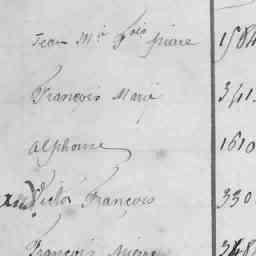 Jean M.ie F.çois pierre 1584
François Marie 341
Alphonse 1610
Victor François 330
François 348